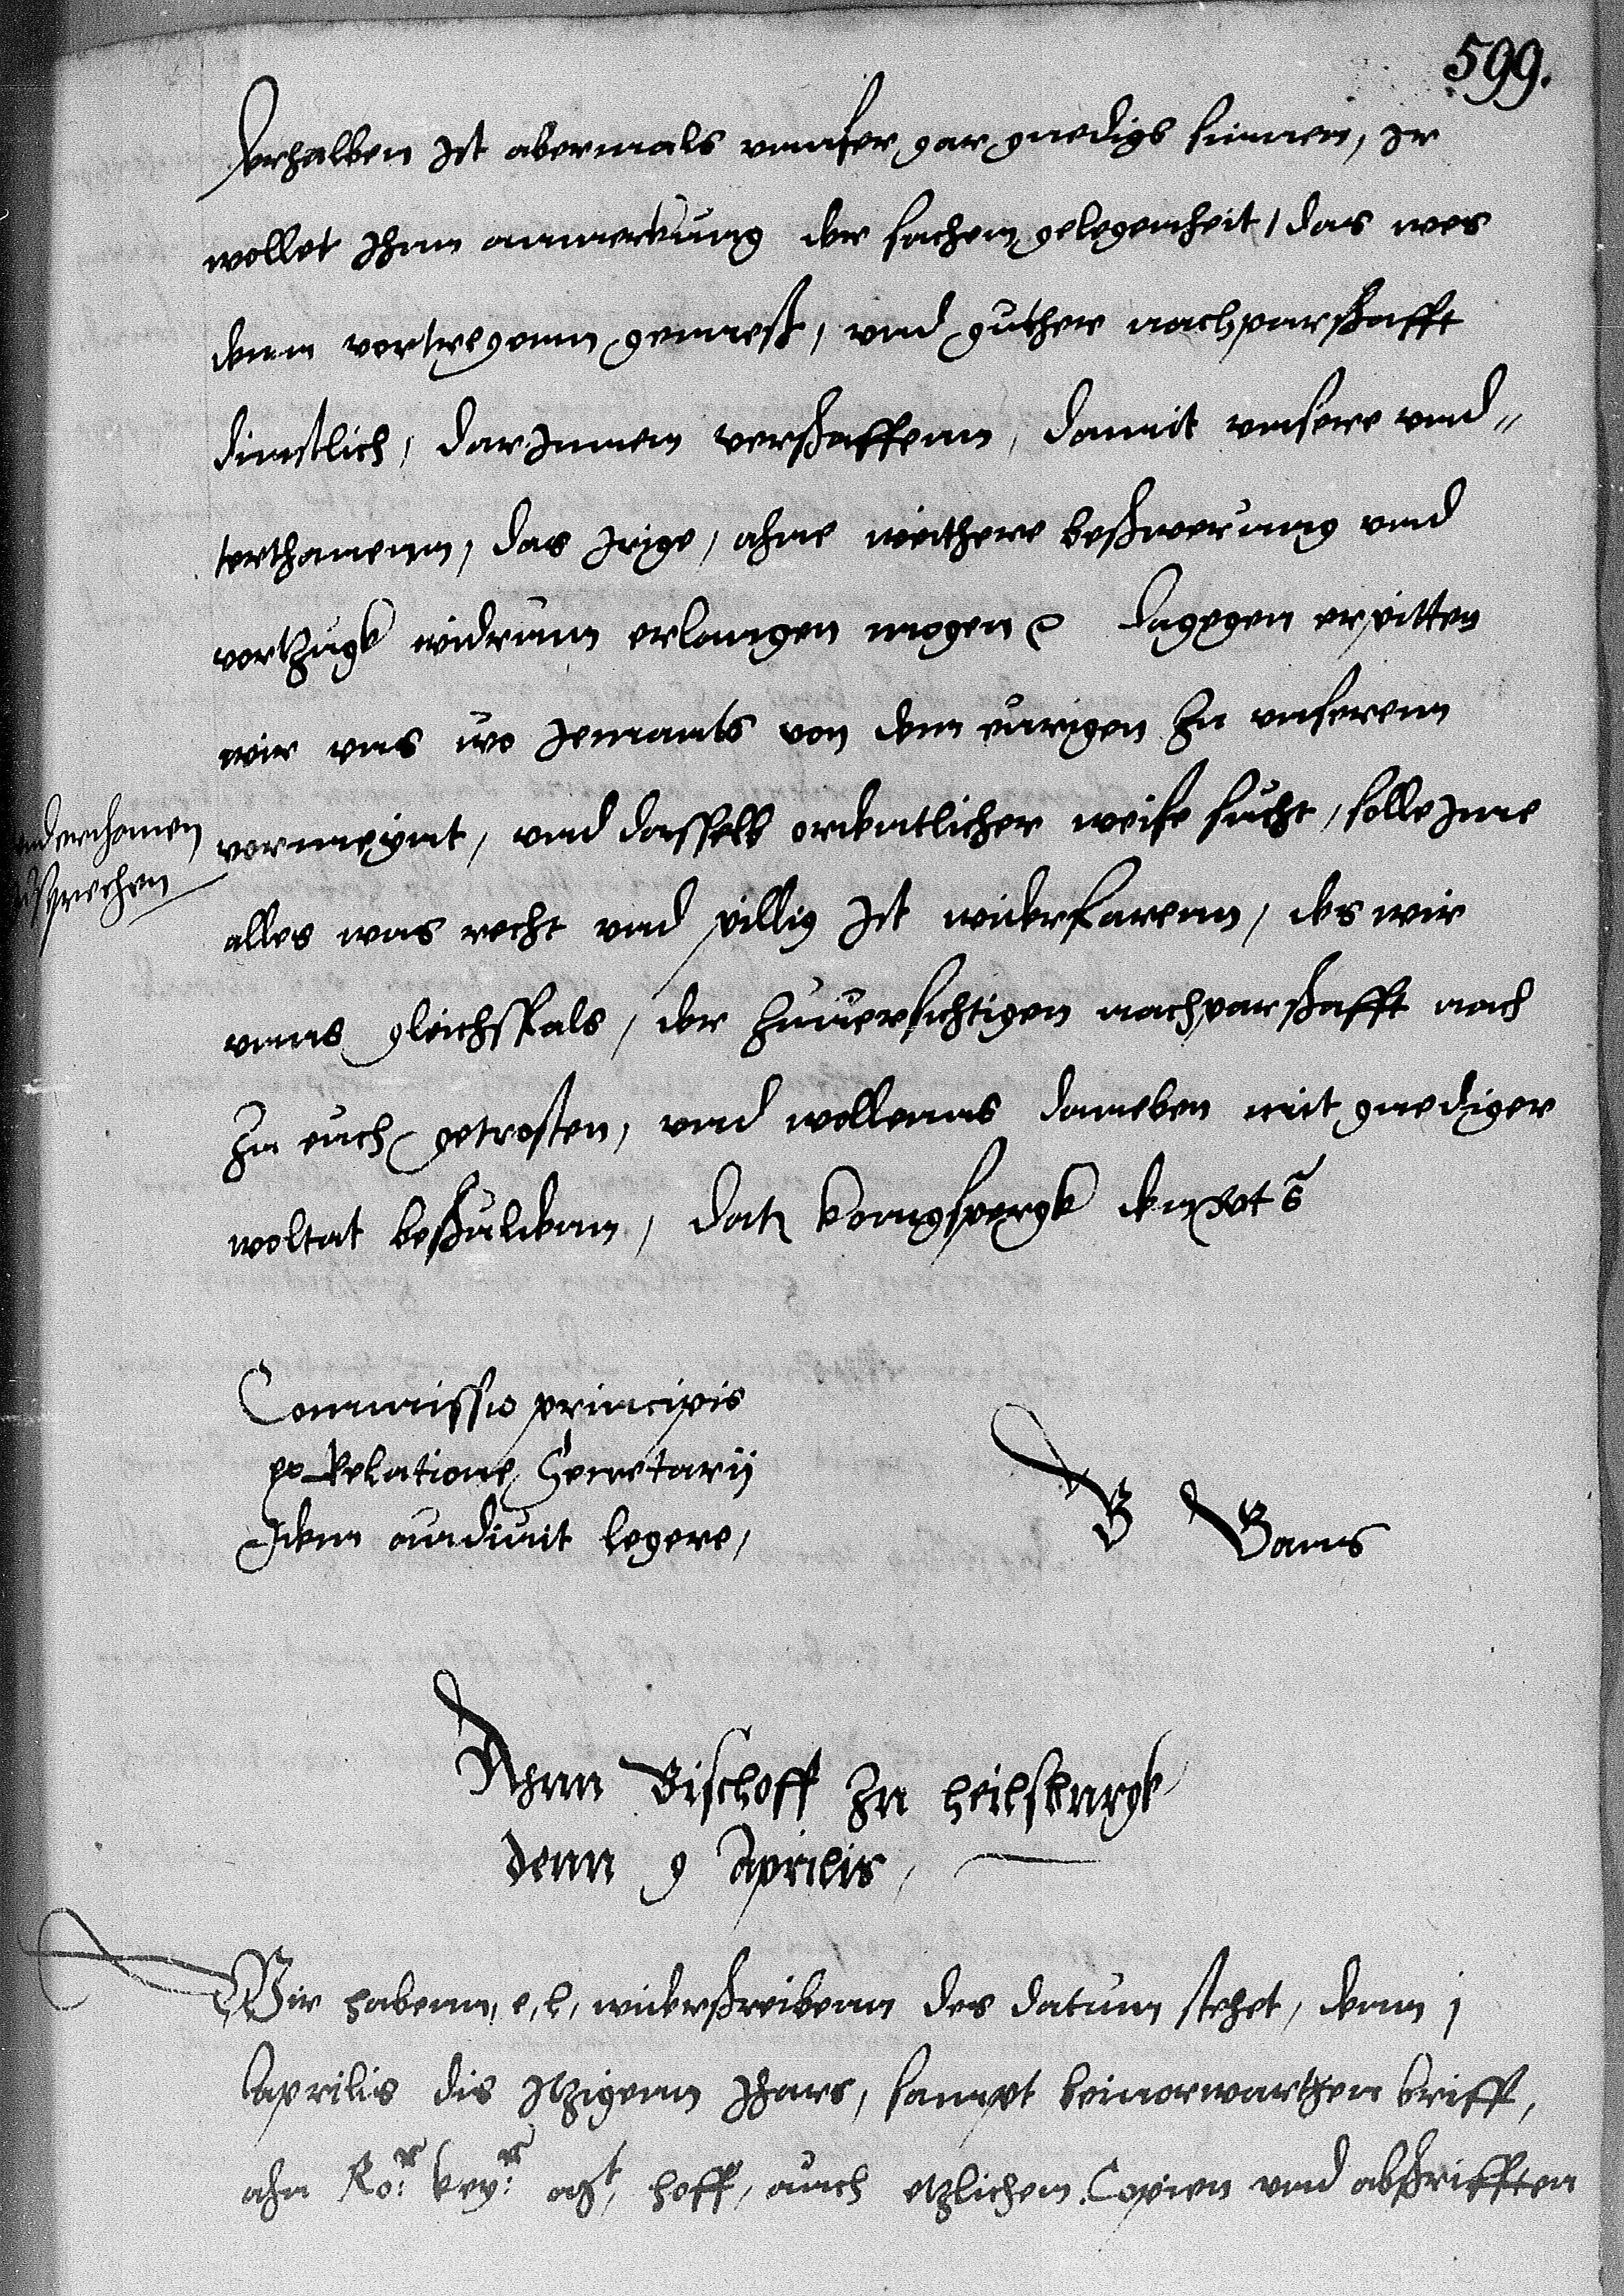 599.
Derhalben Ist abermals vnnser gar gnedigs sinnen, Ir
wollet Ihnn anmerkung der sachen gelegenheit, das wes
denn vortregenn gemeeß, vnd guther nachparschafft
dinstlich, darInnen verschaffenn, damit vnsere vnd-
terthanenn, das Irige, ahne weithere beschwerung vnd
vortzugk widrumm erlangen mogen dagegen erpitten
wir vns wo Jemants von den eurigen zu vnserenn
vnderthanen zusprechen
vormeynt, vnd dasselb ordentlicher weise sucht, solle Ime
alles was recht vnd pillig Ist widerfarenn, des wir
vnns gleichsfals, der zuuersichtigen nachparschafft nach
zu euch getrosten, vnd wollenns daneben mit gnediger
woltat beschuldenn, Datz konigspergk den xvt s
Commissio principis
ex Relatione Secretarij
Idem audiuit legere,
B Gans
Ahnn Bischoff zu heilspurgk
denn 9 Aprilis,
Wir habenn, e, l, widerschreibenn des datum stehet, denn j
Aprilis dis Itzigenn Jhars, sampt beinorwartzen briff,
ahn Ro: key: mt, hoff, auch etzlichen Copien vnd abschrifften